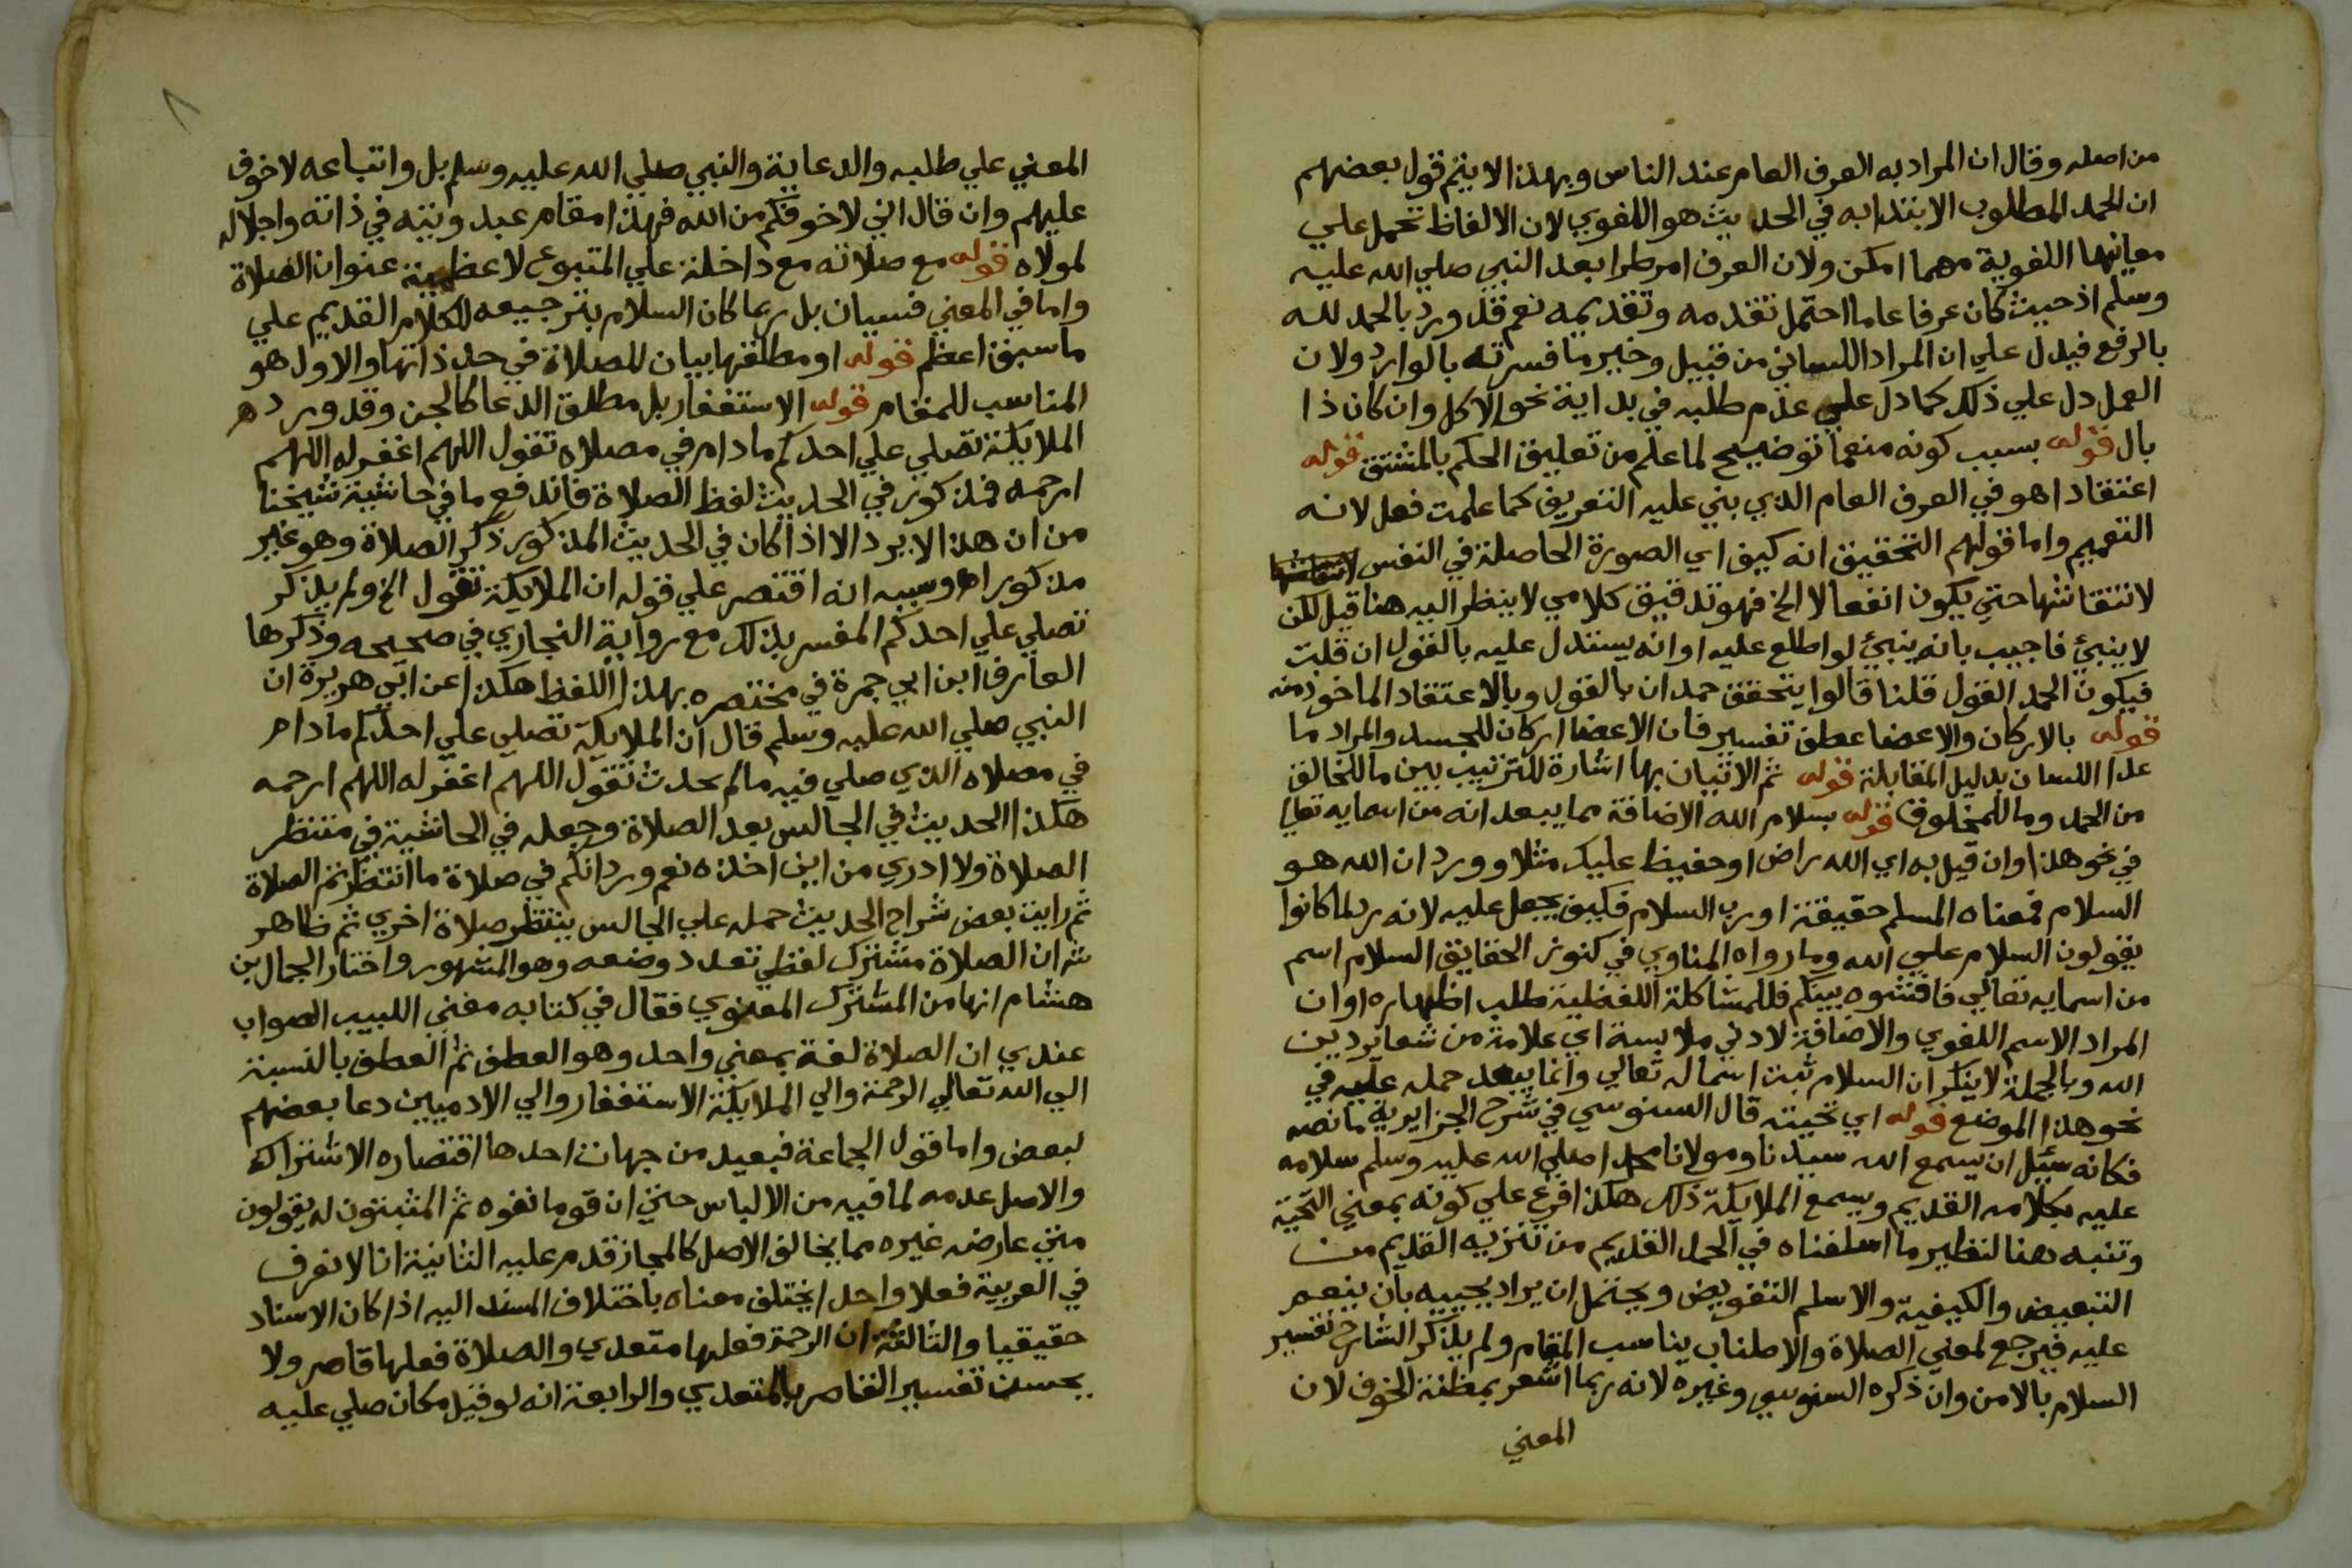 من اصله وقال ان المراد به العرف العام عند الناس وبهذا لا يتم قول بعضهم
ان الحمد المطلوب الابتدا به في الحديث هو اللغوي لان الالفاظ تحمل علي
معانيها اللغوية مهما امكن ولان العرف امر طرا بعد النبي صلي الله عليه
وسلم اذ حيث كان عرفا عاما احتمل تقدمه وتقديمه نعم قد ورد بالحمد لله
بالرفع فيدل علي ان المراد اللساني من قبيل وخير ما فسرته بالوارد ولان
العمل دل علي ذلك كما دل علي عدم طلبه في بداية نحو الاكل وان كان ذا
بال قوله بسبب كونه منعما توضيح لما علم من تعليق الحكم بالمشتق قوله
اعتقادا هو في العرف العام الذي بني عليه التعريف كما علمت فعل لانه
التعميم واما قولهم التحقيق انه كيف اي الصورة الحاصلة في النفس
لانتقاشها حتي يكون انفعالا الخ فهو تدقيق كلامي لا ينظر اليه هنا قيل لكن
لا ينبئ فاجيب بانه ينبئ لو اطلع عليه او انه يستدل عليه بالقول ان قلت
فيكون الحمد القول قلنا قالوا يتحقق حمدان بالقول وبالاعتقاد الماخوذ منه
قوله بالاركان والاعضا عطف تفسير فان الاعضا اركان للجسد والمراد ما
عدا اللسان بدليل المقابلة قوله ثم الاتيان بها اشارة للترتيب بين ما للخالق
من الحمد وما للمخلوق قوله بسلام الله الاضافة مما يبعد انه من اسمايه تعالي
في نحو هذا وان قيل به اي الله راض او حفيظ عليك مثلا وورد ان الله هو
السلام فمعناه المسلم حقيقة او رب السلام فكيف يجعل عليه لانه ربما كانوا
يقولون السلام علي الله وما رواه المناوي في كنوز الحقايق السلام اسم
من اسمايه تعالي فافشوه بينكم فللمشاكلة اللفظية طلب اظهاره او ان
المراد الاسم اللغوي والاضافة لادني ملابسة اي علامة من شعاير دين
الله وبالجملة لا ينكر ان السلام ثبت اسما له تعالي وانما يبعد حمله عليه في
نحو هذا الموضع قوله اي تحيته قال السنوسي في شرح الجزايرية ما نصه
فكانه سئل ان يسمع الله سيدنا ومولانا محمدا صلي الله عليه وسلم سلامه
عليه بكلامه القديم ويسمع الملايكة ذلك هكذا فرع علي كونه بمعني التحية
وتنبه هنا لنظير ما اسلفناه في الحمد القديم من تنزيه القديم من
التبعيض والكيفية والاسلم التفويض ويحتمل ان يراد يحييه بان ينعم
عليه فيرجع لمعني الصلاة والاطناب يناسب المقام ولم يذكر الشارح تفسير
السلام بالامن وان ذكره السنوسي وغيره لانه ربما اشعر بمظنة الخوف لان
المعني
٨
المعني علي طلبه والدعا به والنبي صلي الله عليه وسلم بل واتباعه لا خوف
عليهم وان قال اني لاخوفكم من الله فهذا مقام عبدوديته في ذاته واجلاله
لمولاه قوله مع صلاته مع داخلة علي المتبوع لاعظمية عنوان الصلاة
واما في المعني فسيان بل ربما كان السلام بترجيعه للكلام القديم علي
ما سبق اعظم قوله او مطلقها بيان للصلاة في حد ذاتها والاول هو
المناسب للمقام قوله الاستغفار بل مطلق الدعا كالجن وقد ورد هم
الملايكة تصلي علي احدكم ما دام في مصلاه تقول اللهم اغفر له اللهم
ارحمه فمذكور في الحديث لفظ الصلاة فاندفع ما في حاشية شيخنا
من ان هذا لا يرد الا اذا كان في الحديث المذكور ذكر الصلاة وهو غير
مذكور اه وسببه انه اقتصر علي قوله ان الملايكة تقول الخ ولم يذكر
تصلي علي احدكم المفسر بذلك مع رواية البخاري في صحيحه وذكرها
العارف ابن ابي جمرة في مختصره بهذا اللفظ هكذا عن ابي هريرة ان
النبي صلي الله عليه وسلم قال ان الملايكة تصلي علي احدكم ما دام
في مصلاه الذي صلي فيه ما لم يحدث تقول اللهم اغفر له اللهم ارحمه
هكذا الحديث في الجالس بعد الصلاة وجعله في الحاشية في منتظر
الصلاة ولا ادري من اين اخذه نعم ورد انكم في صلاة ما انتظرتم الصلاة
ثم رايت بعض شراح الحديث حمله علي الجالس ينتظر صلاة اخري ثم ظاهر
شه ان الصلاة مشترك لفظي تعدد وضعه وهو المشهور واختار الجمال بن
هشام انها من المشترك المعنوي فقال في كتابه مغني اللبيب الصواب
عندي ان الصلاة لغة بمعني واحد وهو العطف ثم العطف بالنسبة
الي الله تعالي الرحمة والي الملايكة الاستغفار والي الادميين دعا بعضهم
لبعض واما قول الجماعة فبعيد من جهات احدها اقتضاره الاشتراك
والاصل عدمه لما فيه من الالباس حتي ان قوما نفوه ثم المثبتون له يقولون
متي عارضه غيره مما يخالف الاصل كالمجاز قدم عليه الثانية انا لا نعرف
في العربية فعلا واحدا يختلف معناه باختلاف المسند اليه اذا كان الاسناد
حقيقيا والثالثة ان الرحمة فعلها متعدي والصلاة فعلها قاصر ولا
يحسن تفسير القاصر بالمتعدي والرابعة انه لو قيل مكان صلي عليه